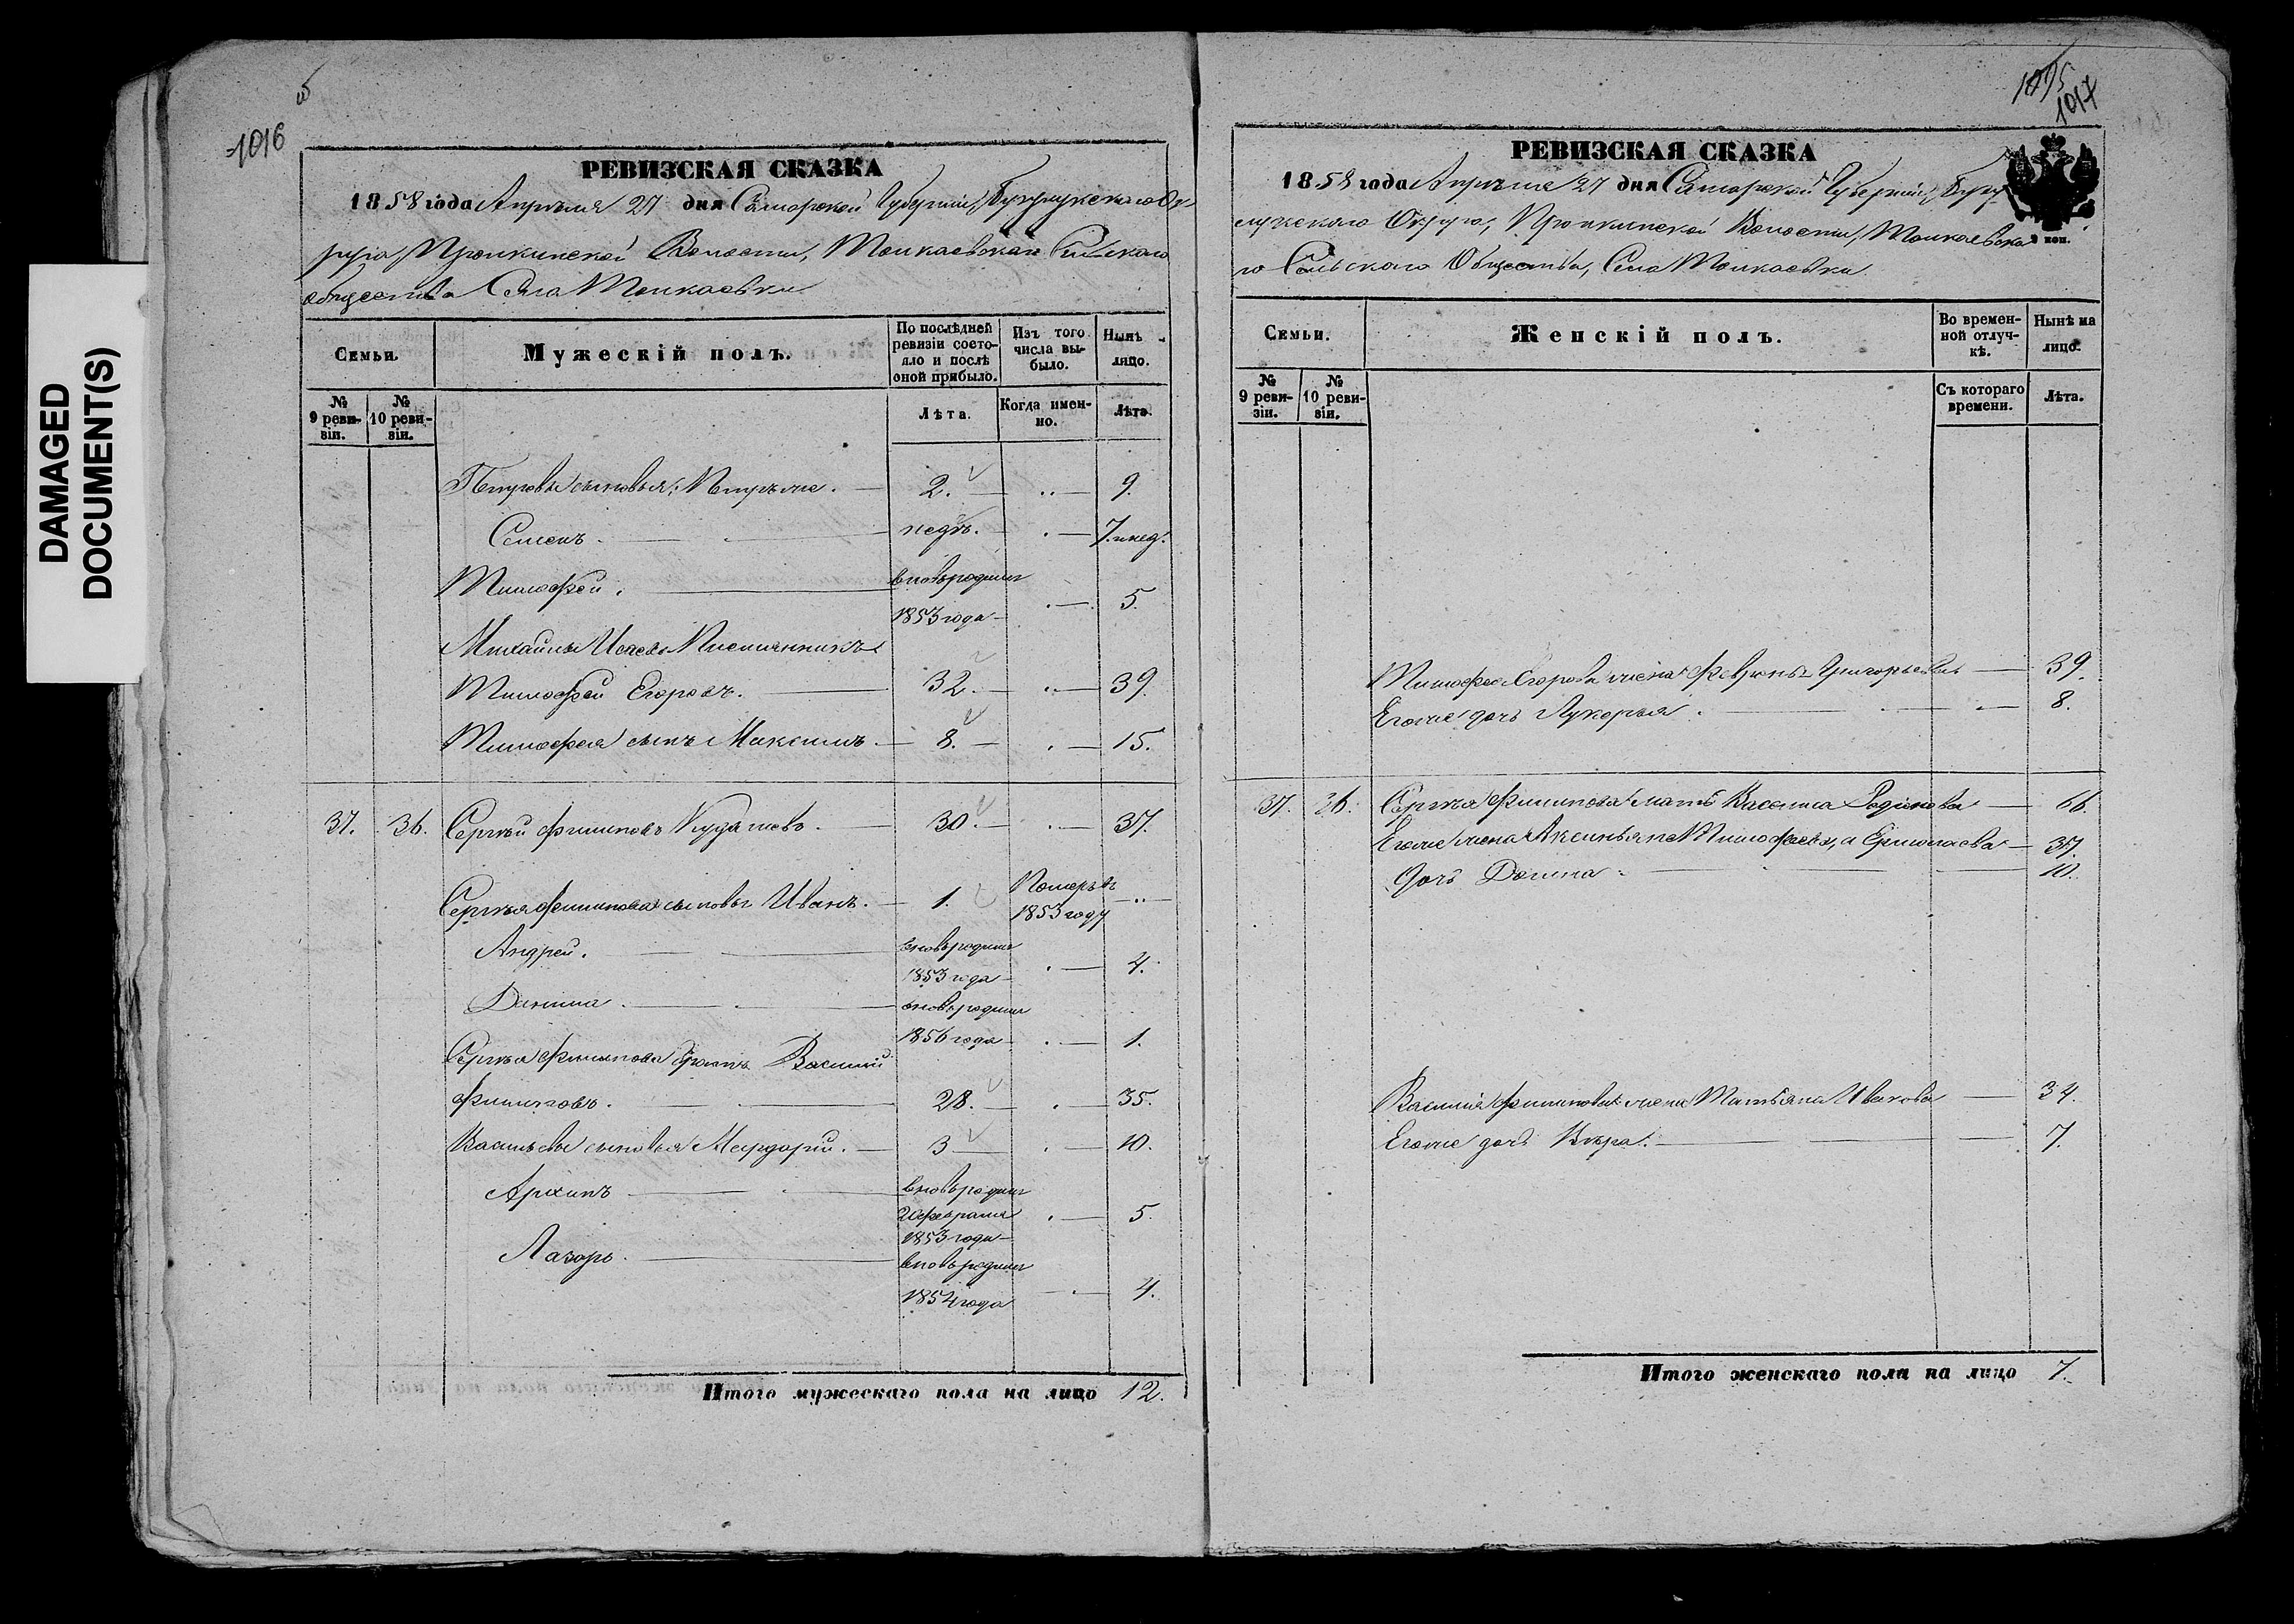 DAMAGED
DOCUMENT(S)
1016
РЕВИЗСКАЯ СКАЗКА
1858 года Апрѣля 27 дня Самарской Губерніи, Бузулукскаго Ок-
руга, Пронкинской Волости, Толкаевскаго Сельскаго
общества Села Толкаевки
Семьи.
Мужескій полъ.
По послѣдней ревизіи состояло и послѣ оной прибыло.
Изъ того числа выбыло.
Нынѣ на лицо.
№ 9 ревизіи.
№ 10 ревизіи.
Лѣта.
Когда именно.
Лѣта.
Петровы сыновья: 2. 9.
Семенъ. недѣ. 7.
Тимофей. вновьрожден 1853 года 5.
Михайлы
Тимофей Егоровъ. 32. 39.
Тимофея сынъ Максимъ. 8. 15.
37. 36. Сергѣй Филиповъ Кудашевъ. 30. 37.
Сергѣя Филипова сыновья Иванъ. 1. Померъ въ 1853 году
Андрей. вновьрожден 1853 года 4.
Данила. вновьрожден 1856 года 1.
Сергѣя Филипова братъ Василий
Филиповъ. 28. 35.
Васильевы сыновья Мардарий. 3 10.
Архипъ вновьрожден февраля 1853 года 5.
Лазарь. вновьрожден 1854 года 4.
Итого мужескаго пола на лицо 12.
1017
РЕВИЗСКАЯ СКАЗКА
1858 года Апрѣля 27 дня Самарской Губерніи, Бузу-
лукскаго Округа, Пронкинской Волости, Толкаевска-
го Сельскаго Общества, Села Толкаевки
Семьи.
Женскій полъ.
Во временной отлучкѣ.
Нынѣ на лицо.
№ 9 ревизіи.
№ 10 ревизіи.
Съ котораго времени.
Лѣта.
Тимофея Егорова жена Феврюнья Григорьева 39.
Егоже дочь Лукерья 8.
37. 36. Сергѣя Филипова мать Василиса Родионова 66.
Егоже жена Аксинья не Тимофеева, а Ермолаева 37.
Дочь Домна 10.
Василия Филипова жена Татьяна Иванова 34.
Егоже дочь Вѣра. 7.
Итого женскаго пола на лицо 7.